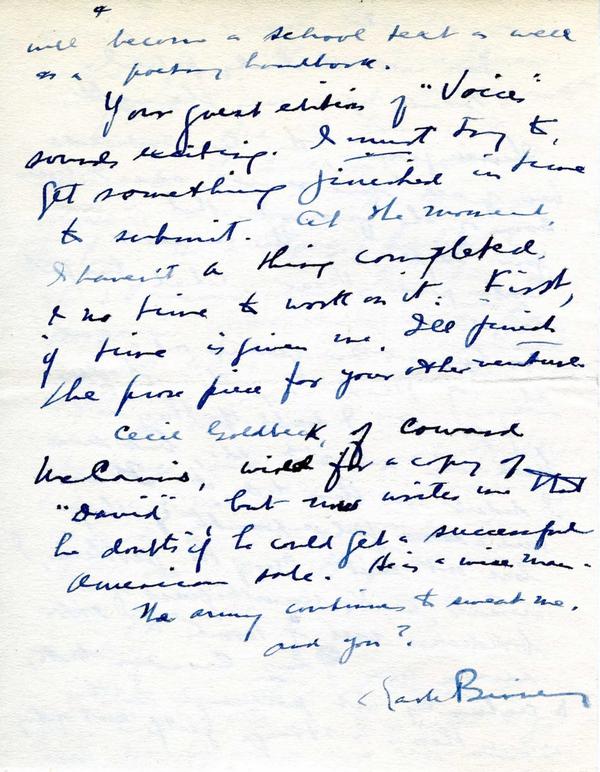 4
will become a school text as well
as a poetry handbook.
Your guest edition of "Voices"
sounds exciting. I must try to
get something finished in time
to submit. At the moment,
I haven't a thing completed,
& no time to work on it. First,
if time is given me, I'll finish
the prose piece for your other venture.
Cecil Goldbeck, of Coward
McCann, wired for a copy of
"David", but now writes me that
he doubts if he could get a successful
American sale. He is a wise man.
The army continues to sweat me.
and you?
Earle Birney